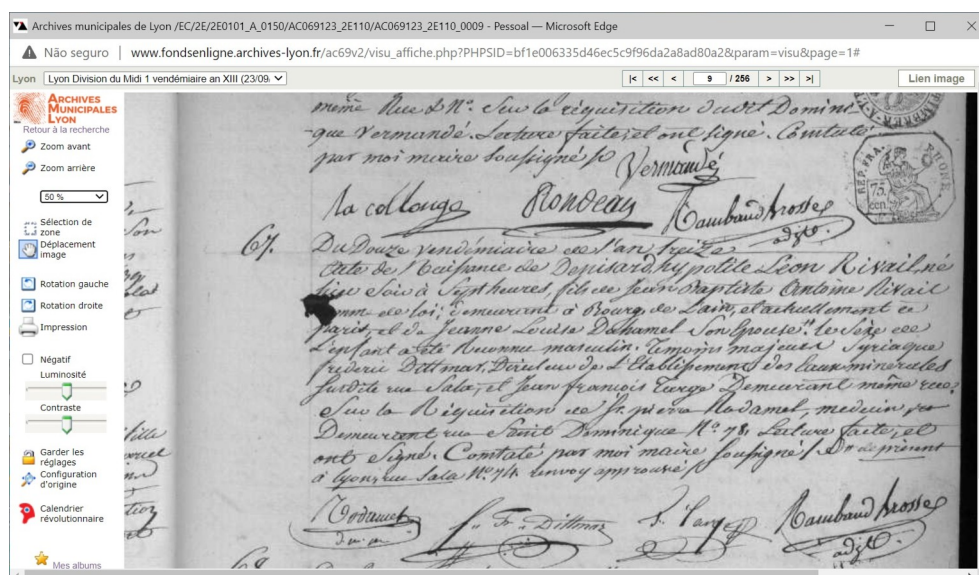 Archives municipales de Lyon /EC/2E/2E0101_A_0150/AC069123_2E110/AC069123_2E110_0009 - Pessoal — Microsoft Edge
Não seguro | www.fondsenligne.archives-lyon.fr/ac69v2/visu_affiche.php?PHPSID=bf1e006335d46ec5c9f96da2a8ad80a2&param=visu&page=1#
Lyon Lyon Division du Midi 1 vendémiaire an XIII (23/09/ |< << < 9 / 256 > >> >| Lien image
ARCHIVES
MUNICIPALES
LYON
Retour à la recherche
Zoom avant
Zoom arrière
50 %
Sélection de
zone
Déplacement
image
Rotation gauche
Rotation droite
Impression
Négatif
Luminosité
Contraste
Garder les
réglages
Configuration
d'origine
Calendrier
révolutionnaire
Mes albums
même Rue & N°. Sur la réquisition dudit Domini-
que Vermandé. Lecture faite, et ont signé. Constaté
par moi maire soussigné
Vermandé
La collonge Rondeau Cambaud brosses
adjt.
REP. FRA. RHONE.
75
cen.
67. Du Douze vendémiaire de l'an treize
acte de Naissance de Denisard, hypolite Léon Rivail, né
hier soir à Sept heures, fils de Jean Baptiste Antoine Rivail
homme de loi, demeurant à Bourg de Lain, et actuellement à
paris, et de Jeanne Louise Duhamel son épouse. le sexe de
L'enfant a été Reconnu masculin. Temoins majeurs Syriaque
frideric Dittmar, Directeur de L'Etablissement des Eaux minérales
susdite rue Sala, et Jean françois Targe Demeurant même rue
Sur la Réquisition de Sr. pierre Rodamel, medecin
Demeurant rue Saint Dominique N°. 78. Lecture faite, et
ont Signé. Constaté par moi maire soussigné
à lyon, rue Sala N°. 74. renvoy approuvé
Rodamel fr. Dittmar J. f. Targe Cambaud brosses
adjt.
68.